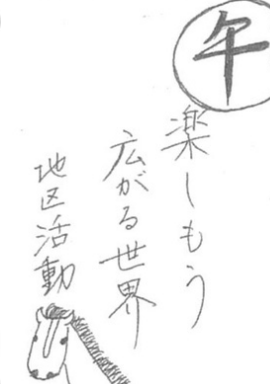 午
楽しもう
広がる世界
地区活動